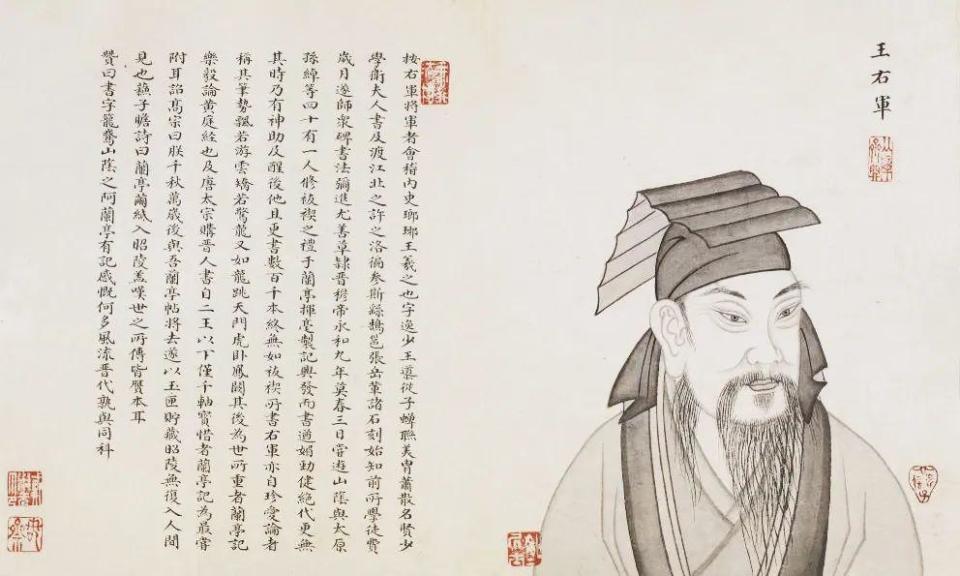 王右軍
按右軍將軍者會稽內史瑯琊王羲之也字逸少王導從子蟬聯美冑蕭散名賢少
學衛夫人書及渡江北之許之洛徧參斯繇鵠邕張岳華諸石刻始知前所學徒費
歲月遂師衆碑書法彌進尤善草隸晋穆帝永和九年莫春三日嘗遊山陰與太原
孫綽等四十有一人修祓禊之禮于蘭亭揮毫製記興發而書遒媚勁健絕代更無
其時乃有神助及醒後他日更書數百千本終無如祓禊所書右軍亦自珍愛論者
稱其筆勢飄若游雲矯若驚龍又如龍跳天門虎卧鳳闕其後為世所重者蘭亭記
樂毅論黄庭經也及唐太宗購晋人書自二王以下僅千軸寶惜者蘭亭記為最嘗
附耳詔高宗曰朕千秋萬歲後與吾蘭亭帖將去遂以玉匣貯藏昭陵無復入人間
見也蘇子瞻詩曰蘭亭繭紙入昭陵蓋嘆世之所傳皆贋本耳
贊曰書字籠鵞山陰之阿蘭亭有記感慨何多風流晋代孰與同科